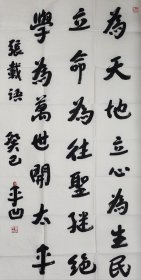 為天地立心為生民
立命為往聖継絶
學為萬世開太平
張載语
癸巳
平凹